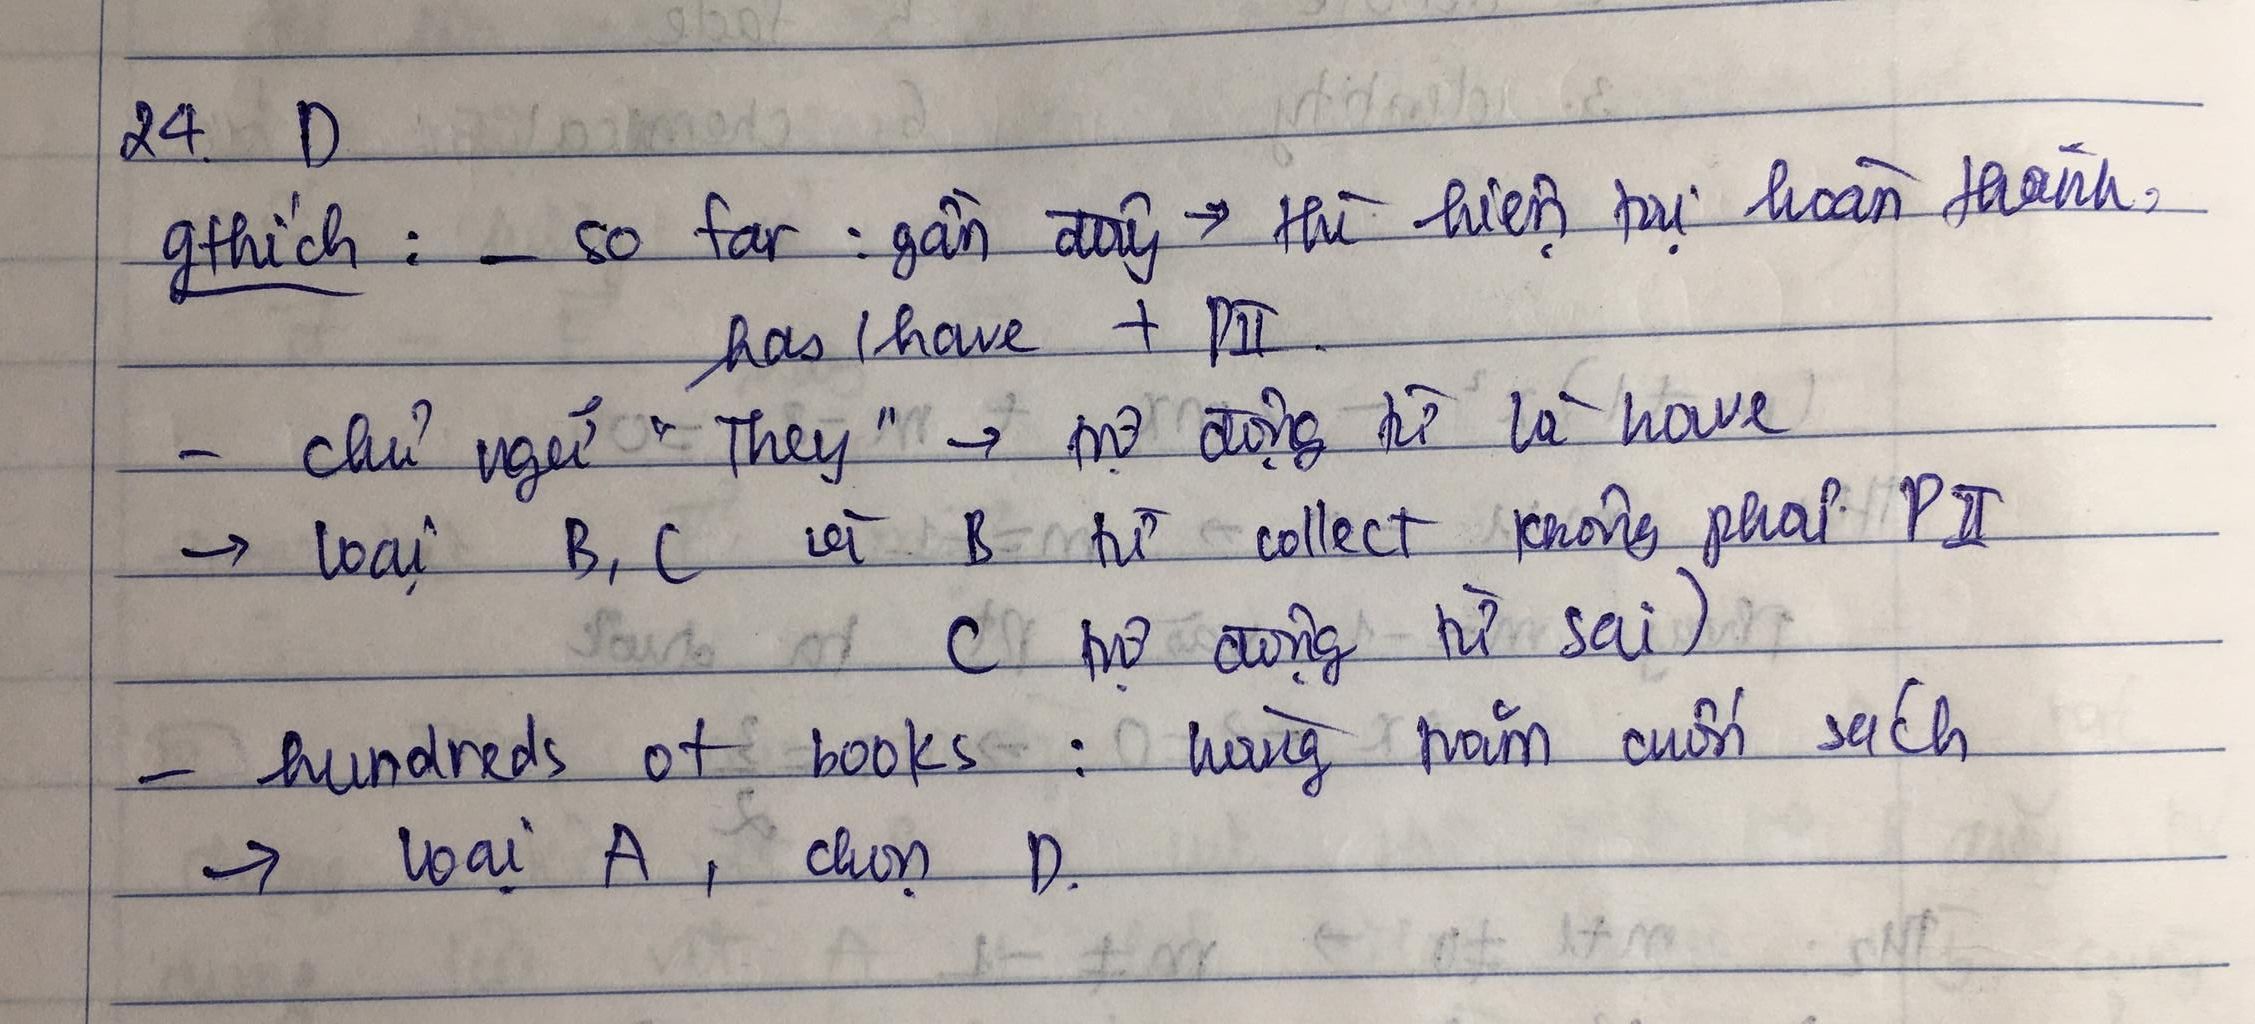 24. D
gthích : - so far : gần đây → thì hiện tại hoàn thành,
has / have + PII.
- chủ ngữ "They" → trợ động từ là have
→ loại B, C vì B từ collect không phải PII
C trợ động từ sai)
- hundreds of books : hàng trăm cuốn sách
→ loại A, chọn D.